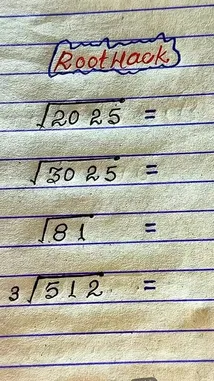 Root Hack
√20 25 =
√30 25 =
√81 =
3√512 =